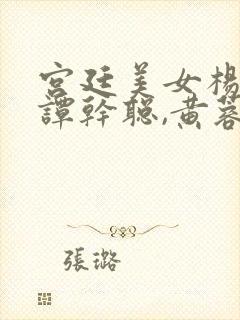 宮廷美女楊
譚幹聰,黃蓉
張璐